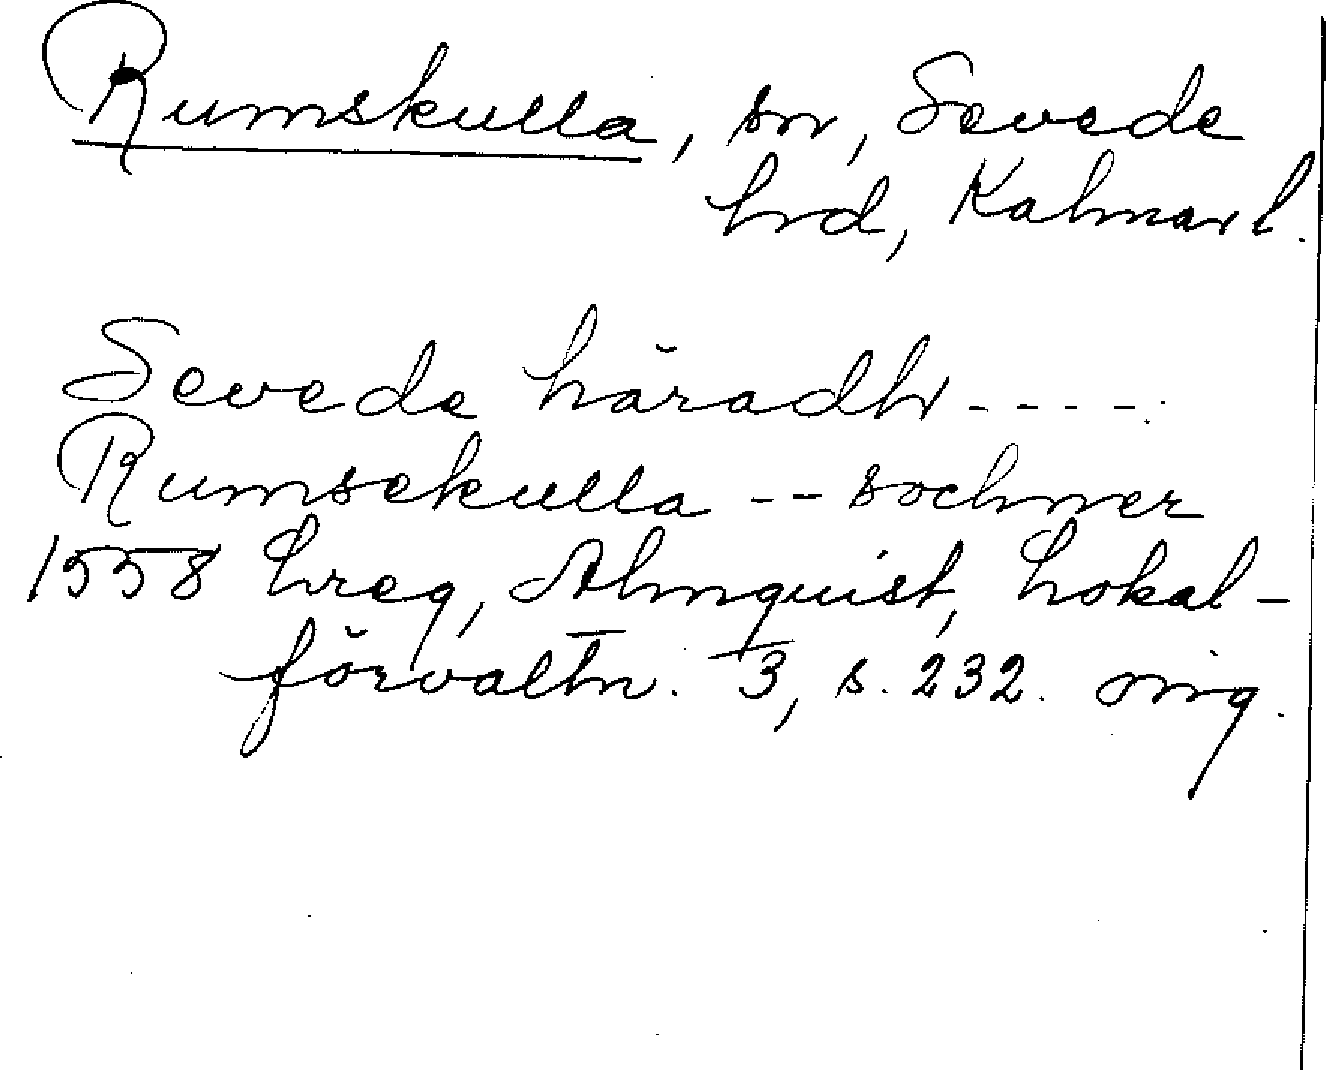 Rumskulla, sn, Sevede
hrd, Kalmar l.
Sevede häradh - - - -:
Rumsekulla -- sochner
1558 Lreg, Almquist, Lokal-
förvaltn. 3, s. 232. orig.